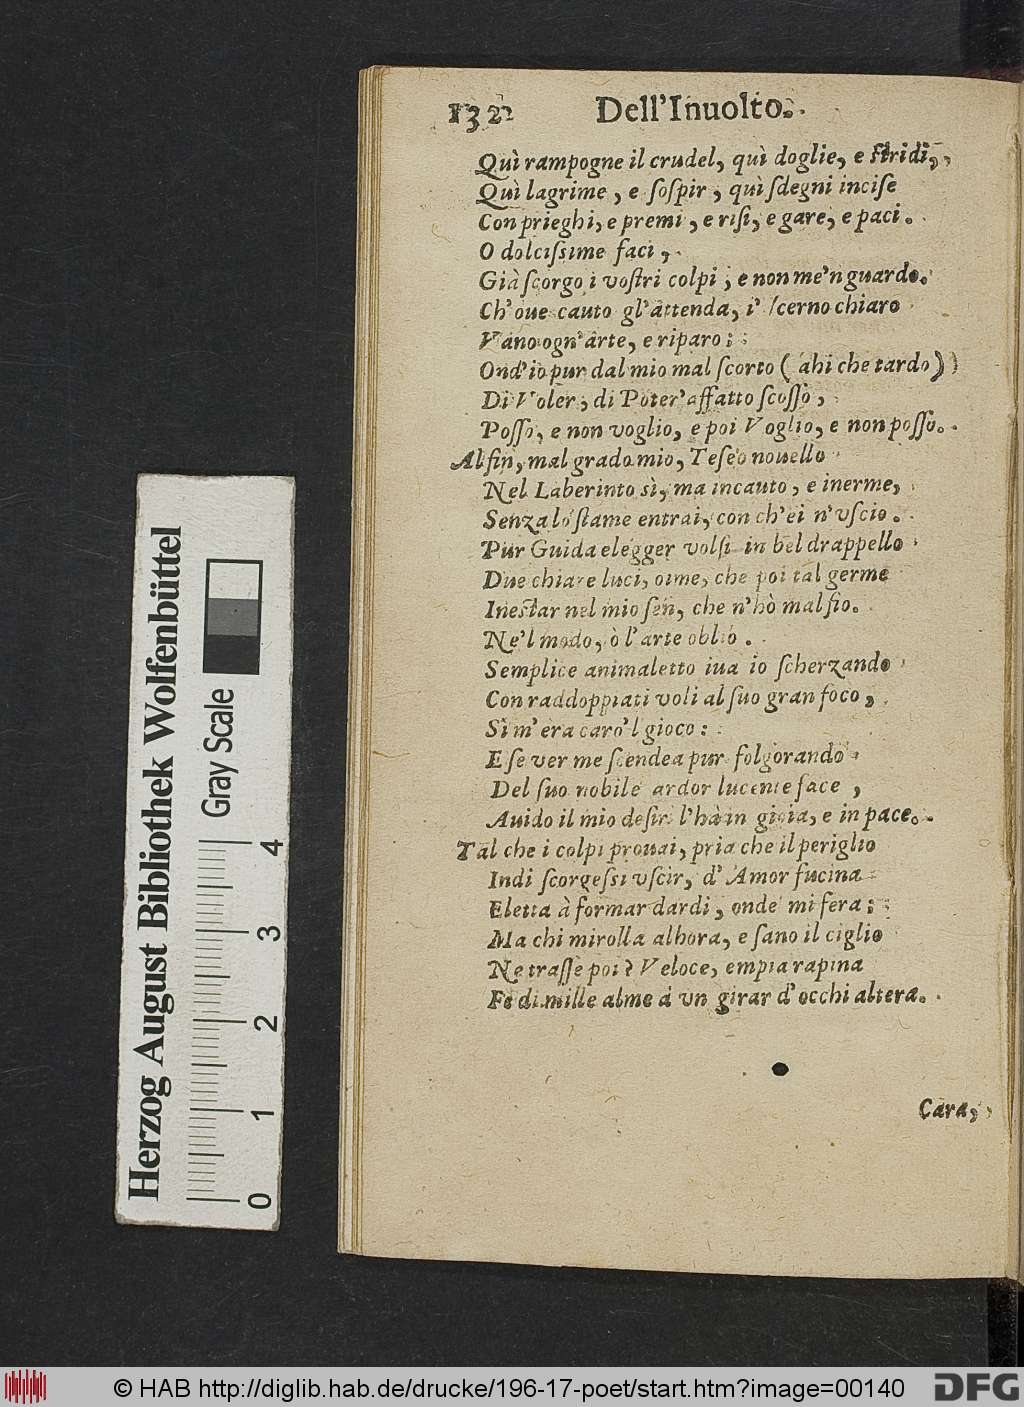 132 Dell'Inuolto.
Quì rampogne il crudel, quì doglie, e stridi,
Quì lagrime, e sospir, quì sdegni incise
Con prieghi, e premi, e risi, e gare, e paci.
O dolcissime faci,
Già scorgo i vostri colpi, e non me'n guardo.
Ch'oue cauto gl'attenda, i' scerno chiaro
Vano ogn'arte, e riparo:
Ond'io pur dal mio mal scorto (ahi che tardo)
Di Voler, di Poter'affatto scosso,
Posso, e non voglio, e poi Voglio, e non posso.
Al fin, mal grado mio, Teseo nouello
Nel Laberinto sì, ma incauto, e inerme,
Senza lo stame entrai, con ch'ei n'vscio.
Pur Guida elegger volsi in bel drappello
Due chiare luci, oime, che poi tal germe
Inestar nel mio sen, che n'hò mal fio.
Ne'l modo, ò l'arte oblio.
Semplice animaletto iua io scherzando
Con raddoppiati voli al suo gran foco,
Sì m'era caro'l gioco:
E se ver me scendea pur folgorando
Del suo nobile ardor lucente face,
Auido il mio desir l'hà in gioia, e in pace.
Tal che i colpi prouai, pria che il periglio
Indi scorgessi vscir, d'Amor fucina
Eletta à formar dardi, onde mi fera;
Ma chi mirolla alhora, e sano il ciglio
Ne trasse poi? Veloce, empia rapina
Fe di mille alme à vn girar d'occhi altera.
Cara,
Herzog August Bibliothek Wolfenbüttel
Gray Scale
0 1 2 3 4
© HAB http://diglib.hab.de/drucke/196-17-poet/start.htm?image=00140
DFG